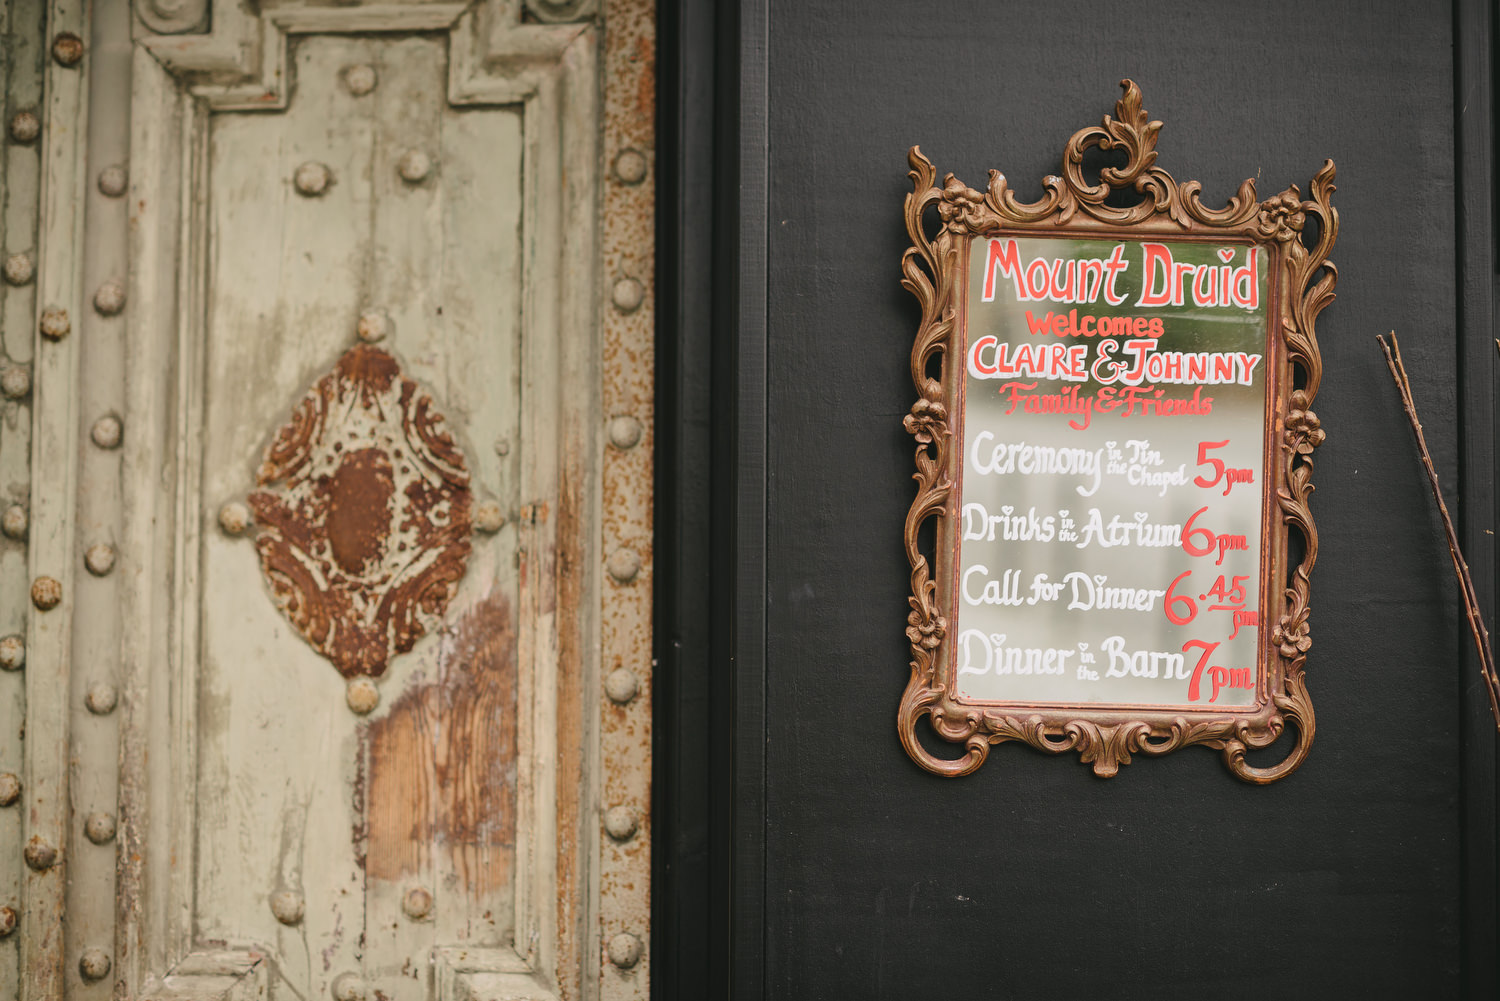 Mount Druid
Welcomes
CLAIRE & JOHNNY
Family & Friends
Ceremony in the Tin Chapel 5pm
Drinks in the Atrium 6pm
Call for Dinner 6.45pm
Dinner in the Barn 7pm